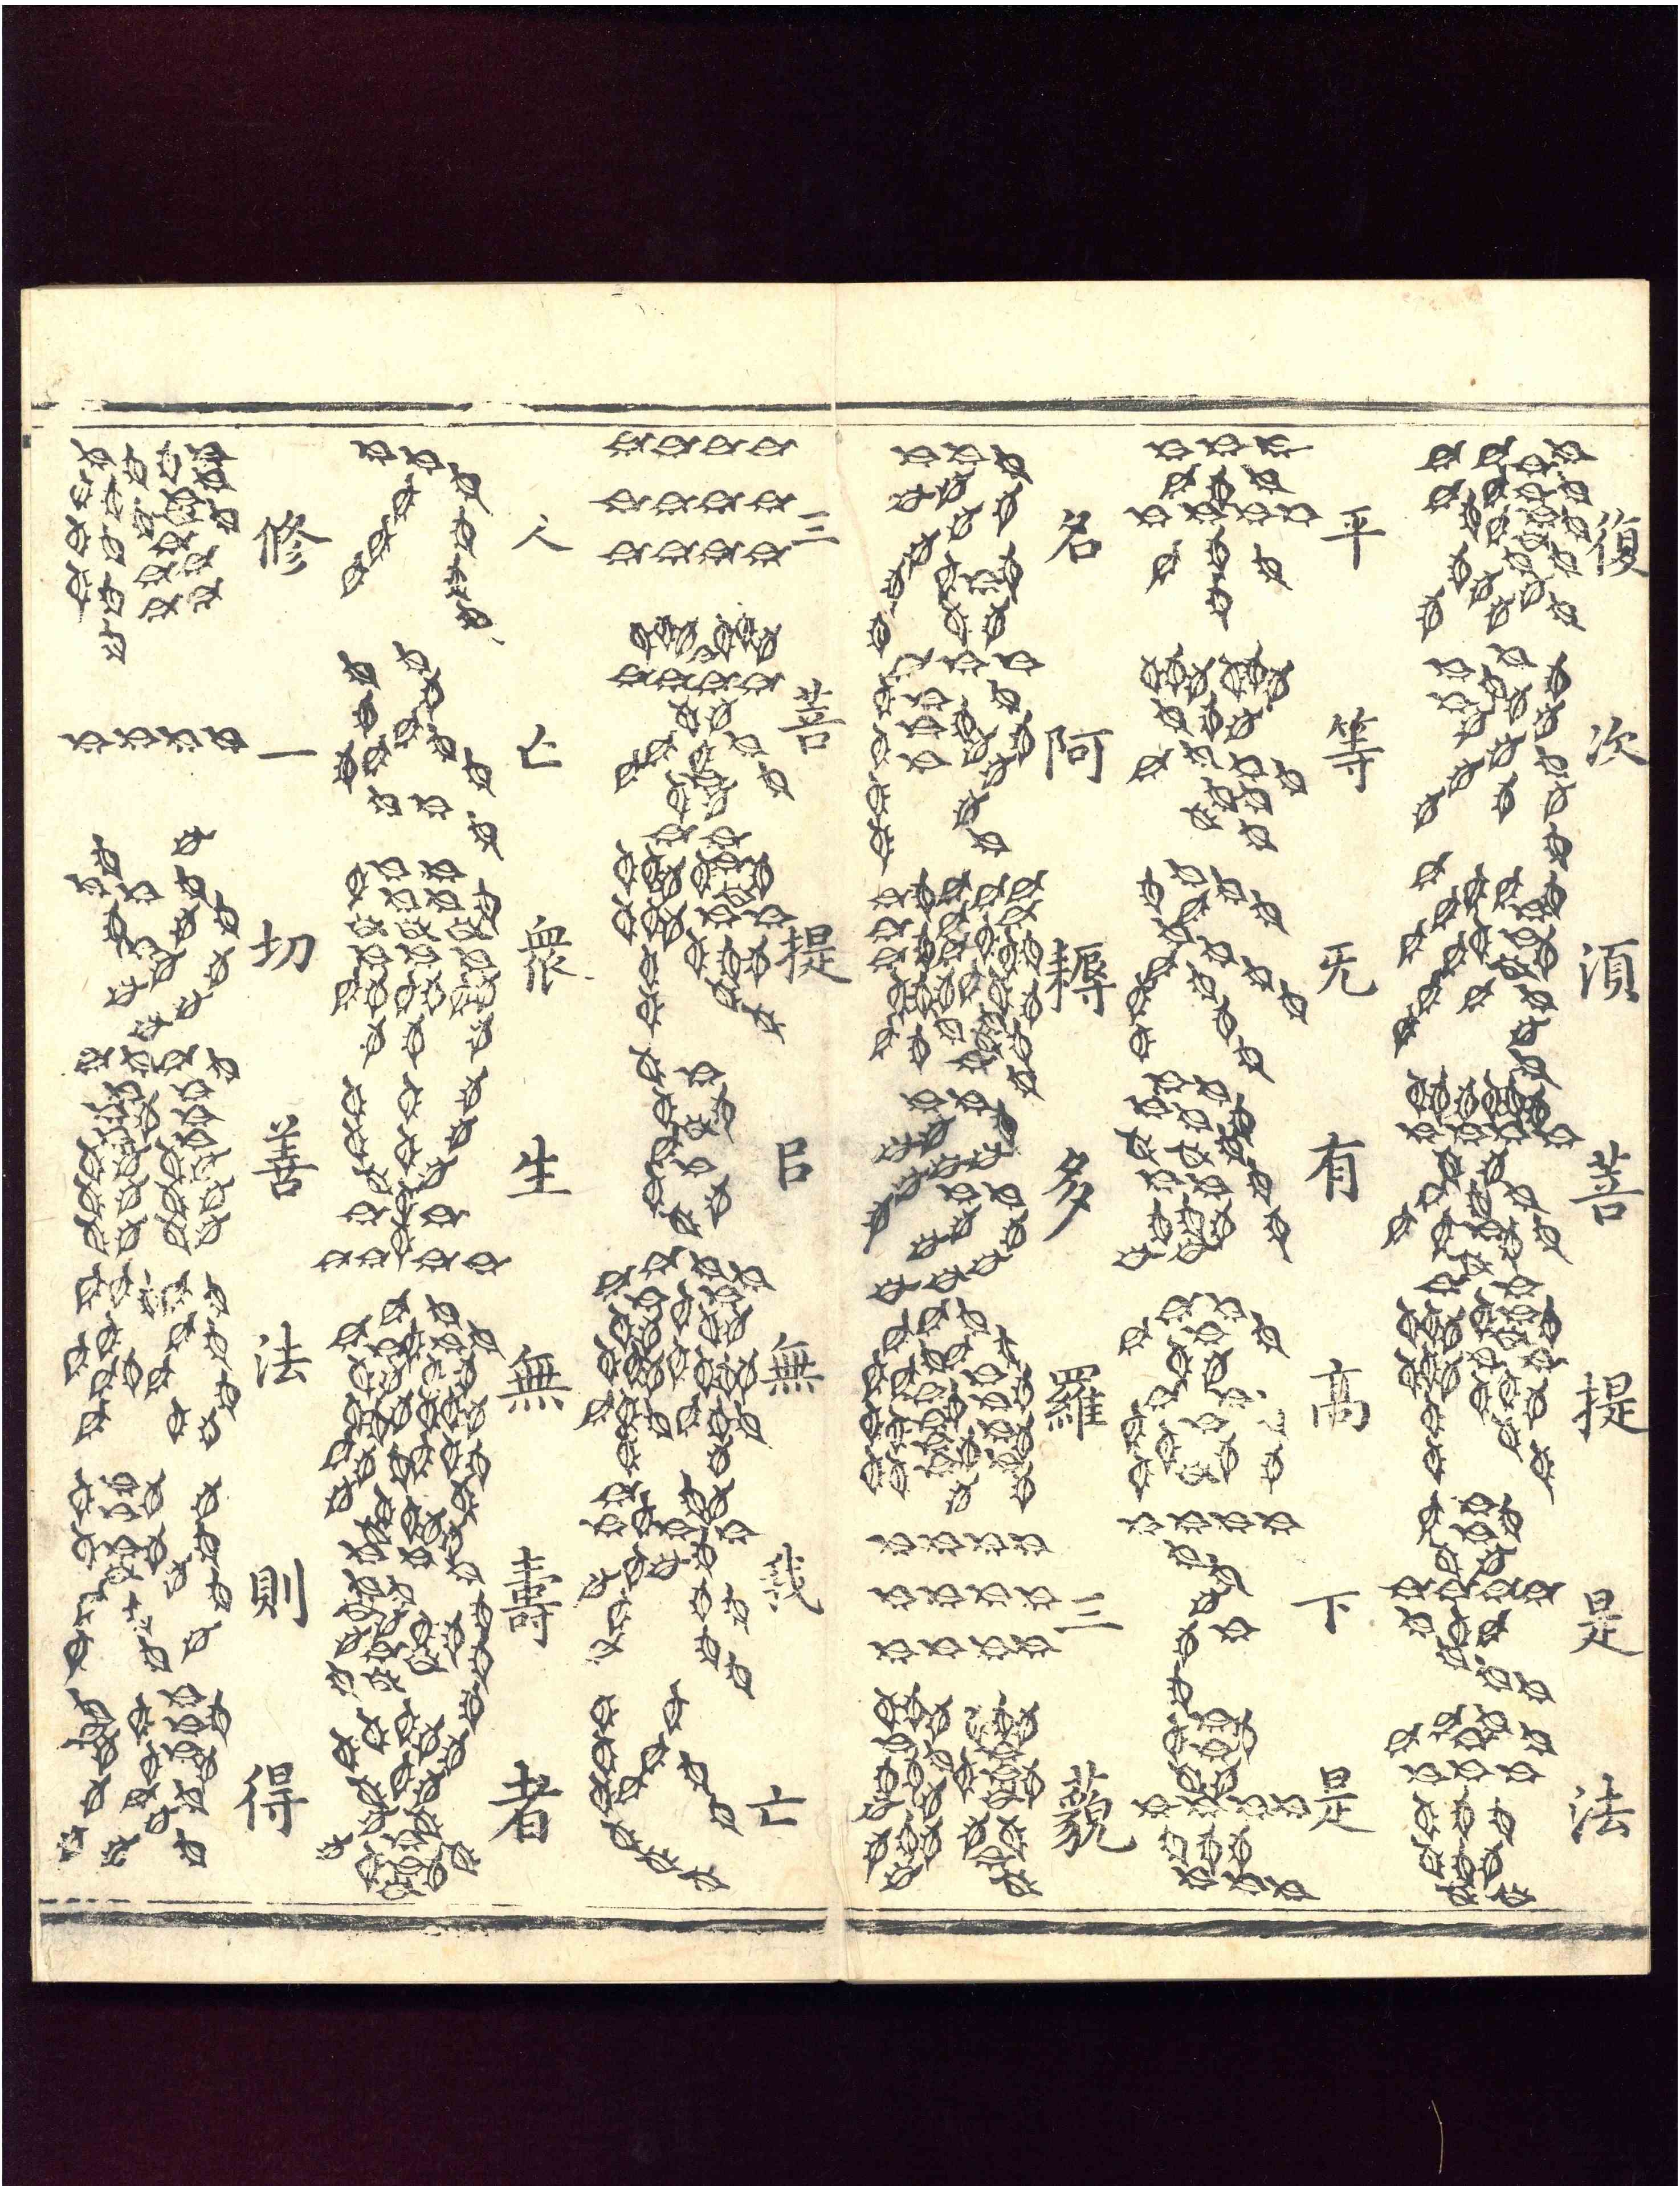 復次湏菩提是法
平等无有高下是
名阿耨多羅三藐
三菩提㠯無我亡
人亡衆生無壽者
修一切善法則得